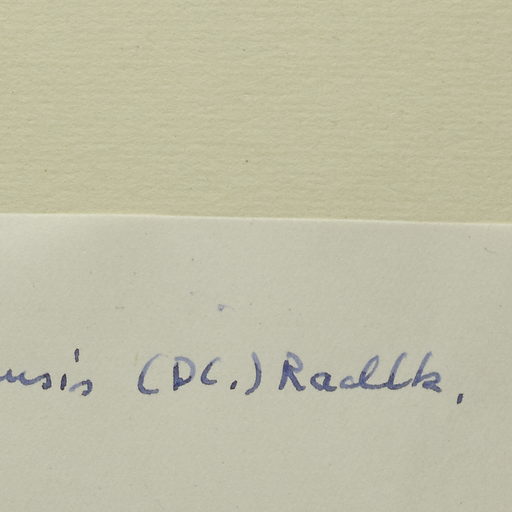 ensis (DC.) Radlk.